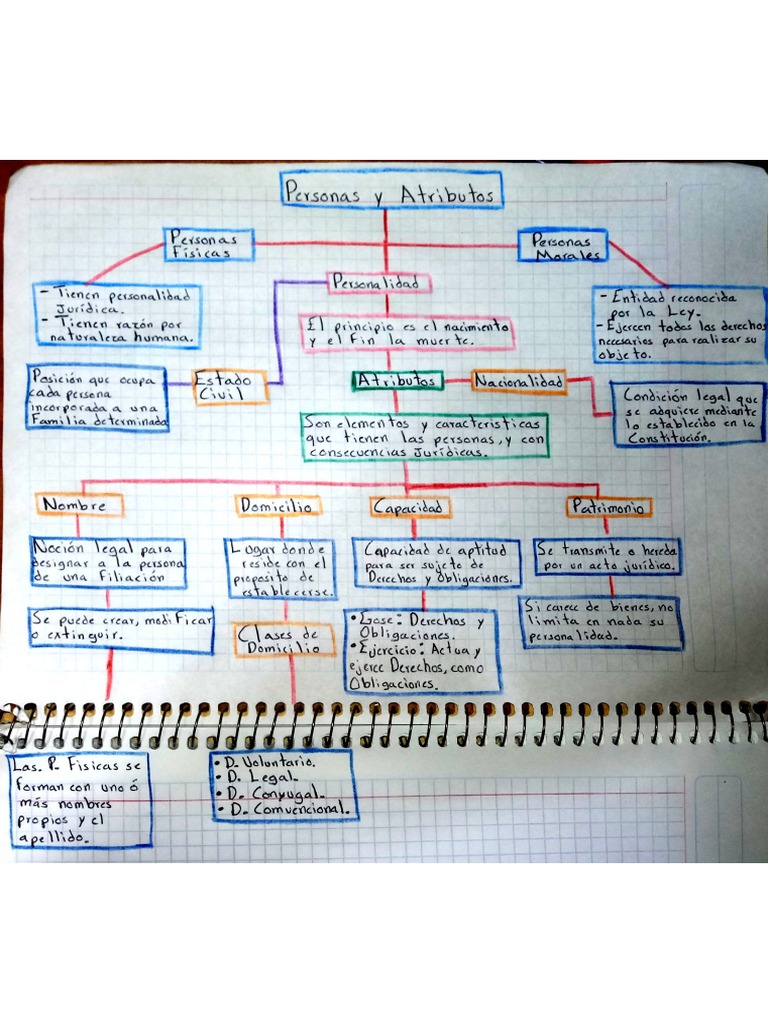 Personas y Atributos
Personas
Físicas
Personas
Morales
Personalidad
- Tienen personalidad
Jurídica.
- Tienen razón por
naturaleza humana.
- Entidad reconocida
por la Ley.
- Ejercen todos los derechos
necesarios para realizar su
objeto.
El principio es el nacimiento
y el Fin la muerte.
Posición que ocupa
cada persona
incorporada a una
Familia determinada
Estado
Civil
Atributos
Nacionalidad
Condición legal que
se adquiere mediante
lo establecido en la
Constitución.
Son elementos y caracteristicas
que tienen las personas, y con
consecuencias Jurídicas.
Nombre
Domicilio
Capacidad
Patrimonio
Noción legal para
designar a la persona
de una Filiación
Lugar donde
reside con el
proposito de
establecerse.
Capacidad de aptitud
para ser sujeto de
Derechos y Obligaciones.
Se transmite o hereda
por un acto jurídico.
Se puede crear, modificar
o extinguir.
Clases de
Domicilio
• Gose: Derechos y
Obligaciones.
• Ejercicio: Actua y
ejerce Derechos, como
Obligaciones.
Si carece de bienes, no
limita en nada su
personalidad.
Las. P. Fisicas se
forman con uno ó
más nombres
propios y el
apellido.
• D. Voluntario.
• D. Legal.
• D. Conyugal.
• D. Comvencional.